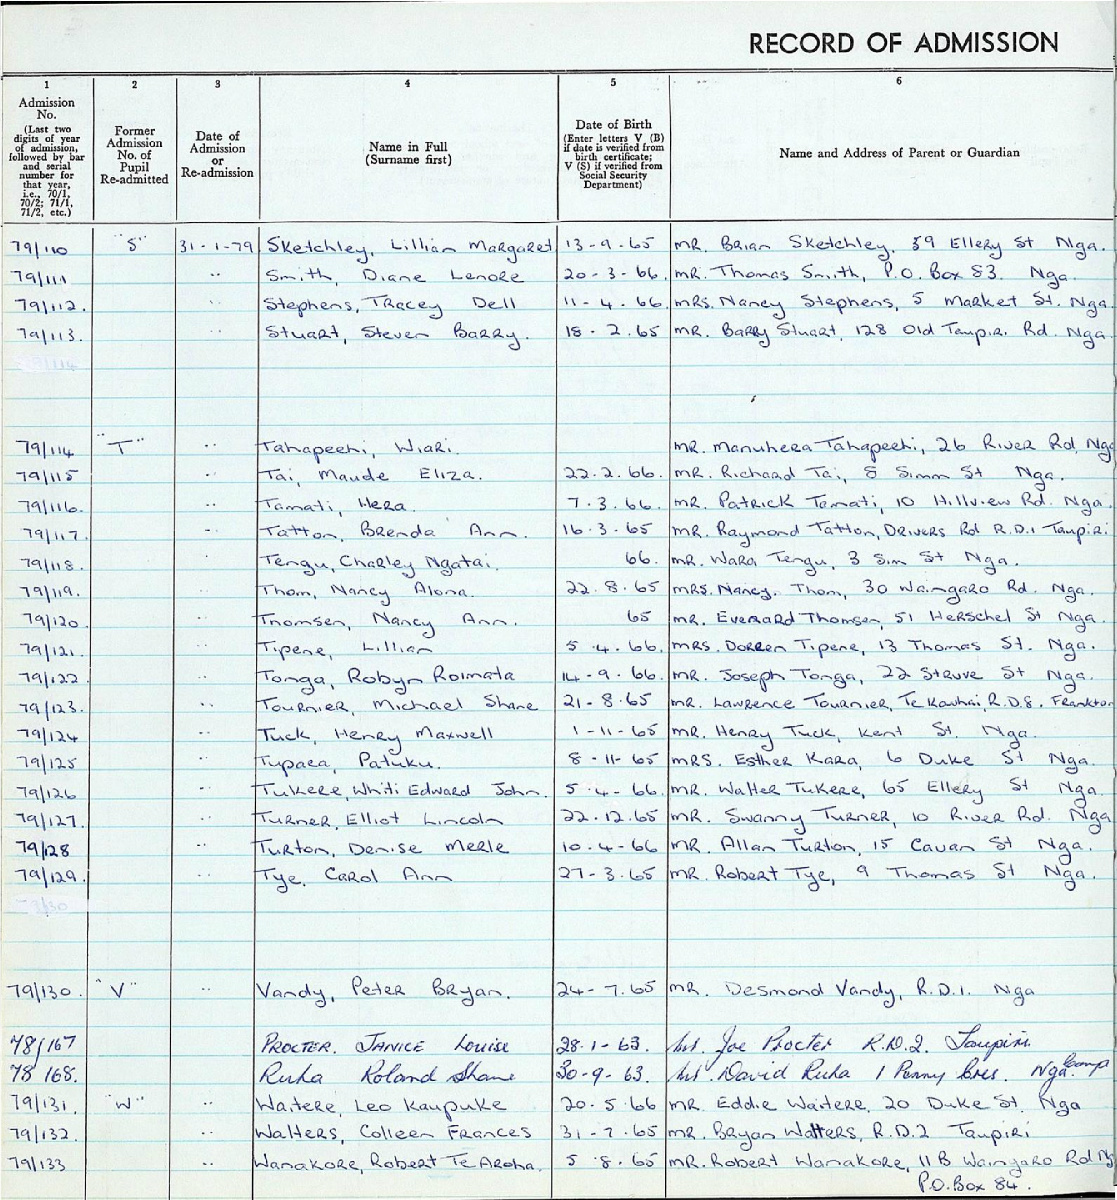 RECORD OF ADMISSION
1 2 3 4 5 6
Admission No. (Last two digits of year of admission, followed by bar and serial number for that year, i.e., 70/1, 70/2; 71/1, 71/2, etc.)
Former Admission No. of Pupil Re-admitted
Date of Admission or Re-admission
Name in Full (Surname first)
Date of Birth (Enter letters V (B) if date is verified from birth certificate; V (S) if verified from Social Security Department)
Name and Address of Parent or Guardian
79/110 "S" 31-1-79 Sketchley, Lillian Margaret 13-9-65 MR. Brian Sketchley, 59 Ellery St Nga.
79/111 " Smith, Diane Lenore 20-3-66. MR. Thomas Smith, P.O. Box 83. Nga.
79/112. " Stephens, Tracey Dell 11-4.66. MRS. Nancy Stephens, 5 Market St. Nga
79/113. " Stuart, Steven Barry. 18-2.65 MR. Barry Stuart, 128 Old Taupiri Rd. Nga.
79/114 "T" " Tahapeehi, Wiari. MR. Manuhera Tahapeehi, 26 River Rd Nga
79/115 " Tai, Maude Eliza. 22.2.66. MR. Richard Tai, 8 Simm St Nga.
79/116. " Tamati, Hera. 7.3.66. MR. Patrick Tamati, 10 Hillview Rd. Nga.
79/117. " Tatton, Brenda Ann. 16.3.65 MR. Raymond Tatton, Drivers Rd R.D.1 Taupiri.
79/118. Tengu, Charley Ngatai. 66. MR. Wara Tengu, 3 Sim St Nga.
79/119. " Thom, Nancy Alona. 22.8.65 MRS. Nancy. Thom, 30 Waingaro Rd. Nga.
79/120 " Thomsen, Nancy Ann. 65 MR. Everard Thomsen, 51 Herschel St Nga.
79/121. " Tipene, Lillian 5.4.66. MRS. Doreen Tipene, 13 Thomas St. Nga.
79/122 " Tonga, Robyn Roimata 14-9.66. MR. Joseph Tonga, 22 Struve St Nga.
79/123. " Tournier, Michael Shane 21-8.65 MR. Lawrence Tournier, Te Kowhai, R.D.8. Frankton
79/124 " Tuck, Henry Maxwell 1-11-65 MR. Henry Tuck, Kent St. Nga.
79/125 " Tupaea, Patuku. 8-11-65 MRS. Esther Kara, 6 Duke St Nga.
79/126 " Tukere, Whiti Edward John. 5.4-66 MR. Walter Tukere, 65 Ellery St Nga.
79/127. " Turner, Elliot Lincoln 22.12.65 MR. Swanny Turner, 10 River Rd. Nga
79/128 " Turton, Denise Merle 10.4-66 MR. Allan Turton, 15 Cavan St Nga.
79/129. " Tye, Carol Ann 27-3.65 MR. Robert Tye, 9 Thomas St Nga.
79/130. "V" " Vandy, Peter Bryan. 24-7.65 MR. Desmond Vandy, R.D.1. Nga
78/167 PROCTER. JANICE Louise 28.1-63. Mr. Joe Procter R.D.2. Taupiri.
78 168. Ruka Roland Shane 30-9-63. Mr. David Ruka 1 Penny Cres. Nga.
79/131. "W" " Waitere, Leo Kaupuke 20.5.66 MR. Eddie Waitere, 20 Duke St. Nga
79/132. " Walters, Colleen Frances 31-7.65 MR. Bryan Walters, R.D.2 Taupiri
79/133 " Wanakore, Robert Te Aroha. 5.8.65 MR. Robert Wanakore, 11B Waingaro Rd
P.O. Box 84.